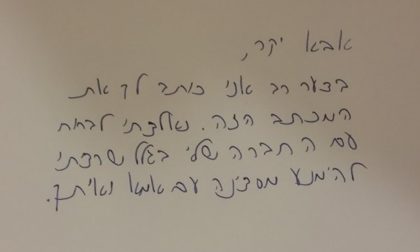 אבא יקר,
בצער רב אני כותב לך את
המכתב הזה. נאלצתי לברוח
עם החברה שלי בגלל שרציתי
להימנע מסצינה עם אמא ואיתך.